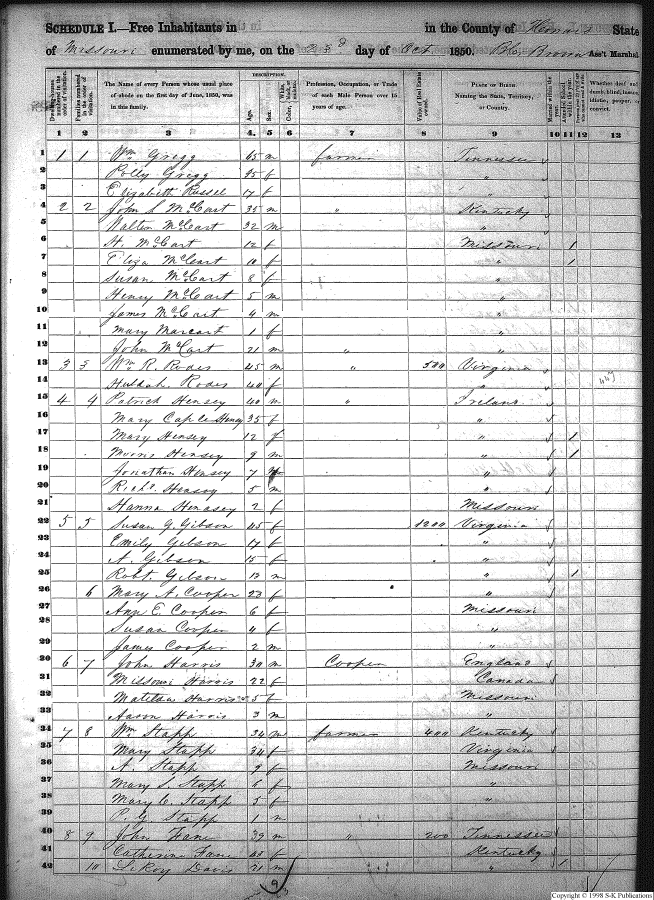 SCHEDULE I.—Free Inhabitants in in the County of State
of Missouri enumerated by me, on the 23d day of Oct 1850. Brown Ass't Marshal.
Dwelling-houses numbered in the order of visitation.
Families numbered in the order of visitation.
The Name of every Person whose usual place of abode on the first day of June, 1850, was in this family.
DESCRIPTION.
Age.
Sex.
Color, White, black, or mulatto.
Profession, Occupation, or Trade of each Male Person over 15 years of age.
Value of Real Estate owned.
PLACE OF BIRTH. Naming the State, Territory, or Country.
Married within the year.
Attended School within the year.
Whether deaf and dumb, blind, insane, idiotic, pauper, or convict.
1 2 3 4. 5 6 7 8 9 10 11 12 13
1 1 1 Wm Gregg 65 m farmer Tennessee
2 Polly Gregg 45 f "
3 Elizabeth Russel 17 f "
4 2 2 John S McCart 35 m " Kentucky
5 Walten McCart 32 m "
6 H. McCart 12 f Missouri 1
7 Eliza McCart 10 f " 1
8 Susan McCart 8 f "
9 Henry McCart 5 m "
10 James McCart 4 m "
11 Mary Marcart 1 f "
12 John McCart 21 m " "
13 3 3 Wm R. Rodes 45 m " 500 Virginia
14 Huldah Rodes 40 f "
15 4 4 Patrick Hensey 40 m " Ireland
16 Mary Hensey 35 f "
17 Mary Hensey 12 f " 1
18 Morris Hensey 9 m " 1
19 Jonathan Hensey 7 "
20 Richd. Hensey 5 m "
21 Hanna Hensey 2 f Missouri
22 5 5 Susan G. Gibson 45 f 1200 Virginia
23 Emily Gibson 17 f "
24 A. Gibson 15 f "
25 Robt. Gibson 13 m " 1
26 6 Mary A. Cooper 23 f "
27 Ann E. Cooper 6 f Missouri
28 Susan Cooper 4 f "
29 James Cooper 2 m "
30 6 7 John Harris 30 m Cooper England
31 Missouri Harris 22 f Canada
32 Matilda Harris 5 f Missouri
33 Aaron Harris 3 m "
34 7 8 Wm Stapp 34 m farmer 400 Kentucky
35 Mary Stapp 34 f Virginia
36 A. Stapp 9 f Missouri
37 Mary S. Stapp 6 f "
38 Mary C. Stapp 5 f "
39 P. G Stapp 1 m "
40 8 9 John Fane 39 m " 200 Tennessee
41 Catherine Fane f Kentucky
42 10 LeRoy Davis 21 m " 1
9
Copyright © 1998 S-K Publications